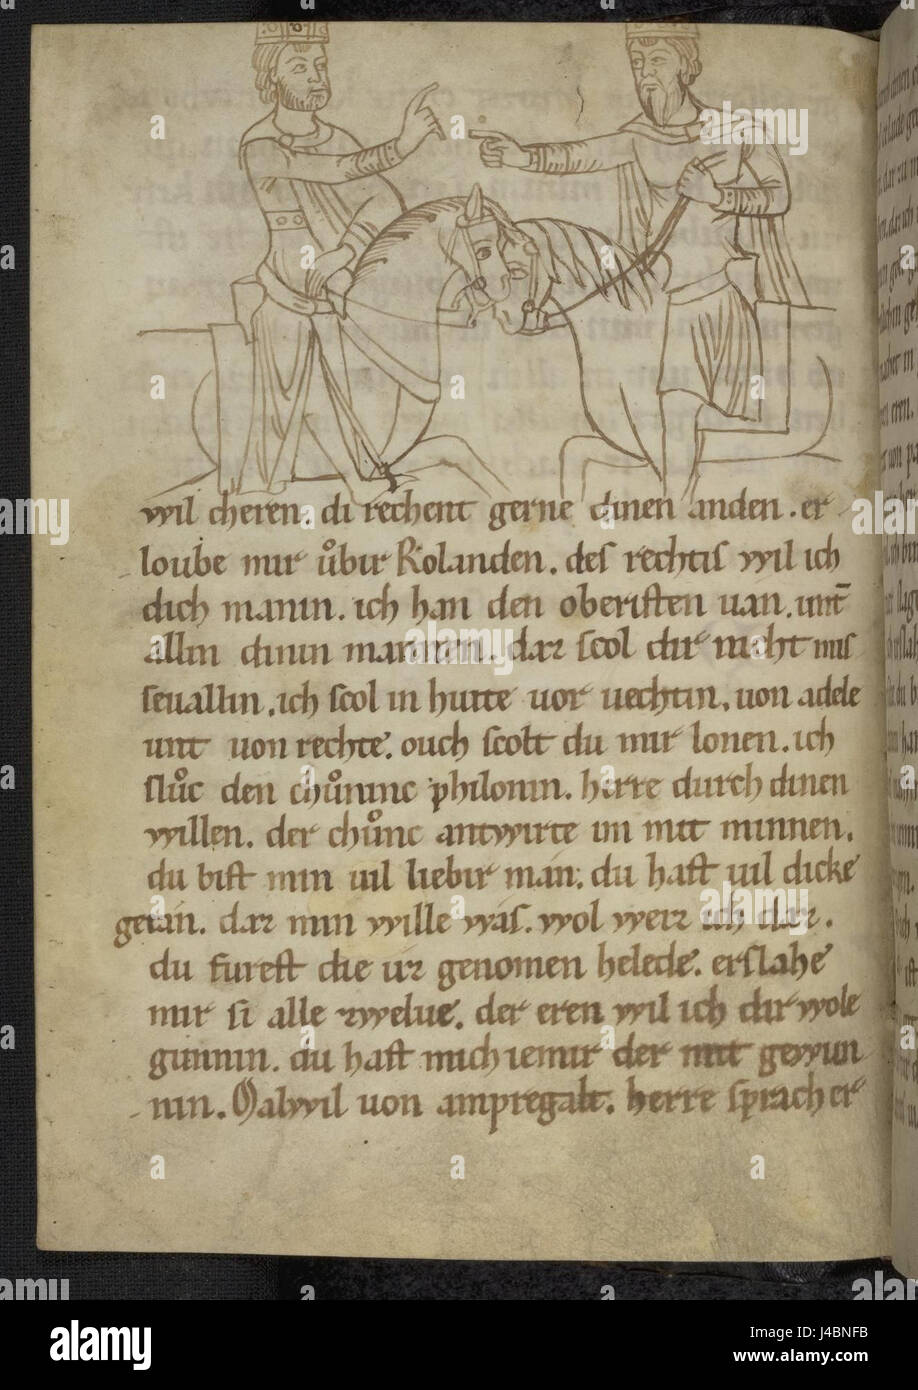 wil cheren. di rechent gerne dinen anden. er
loube mir uͦbir Rolanden. des rechtis wil ich
dich manin. ich han den oberisten uan. unt̄
allin dinin mannen. daz scol dir nicht mis
seuallin. ich scol in hutte uor uechtin. uon adele
unt uon rechte. ouch scolt du mir lonen. ich
sluͦc den chuͦninc philonin. herre durch dinen
willen. der chuͦnc antwirte im mit minnen.
du bist min uil liebir man. du hast uil dicke
getan. daz min wille was. wol weiz ich daz.
du furest die uz genomen helede. erslahe
mir si alle zwelue. der eren wil ich dir wole
gunnin. du hast mich iemir der mit gewun
nin. Malwil uon ampregalt. herre sprach er
alamy
Image ID: J4BNFB
www.alamy.com